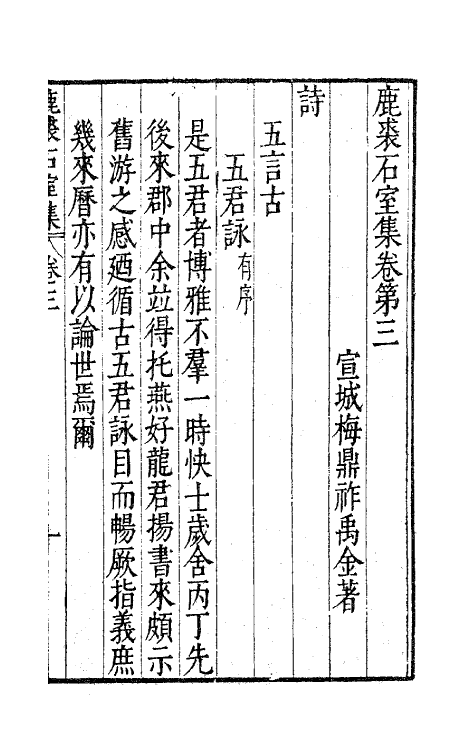 鹿裘石室集卷第三
宣城梅鼎祚禹金著
詩
五言古
五君詠有序
是五君者博雅不羣一時快士歲舍丙丁先
後來郡中余竝得托燕好龍君揚書來頗示
舊游之感廼循古五君詠目而暢厥指義庶
幾來曆亦有以論世焉爾
鹿裘石室集 卷三 一